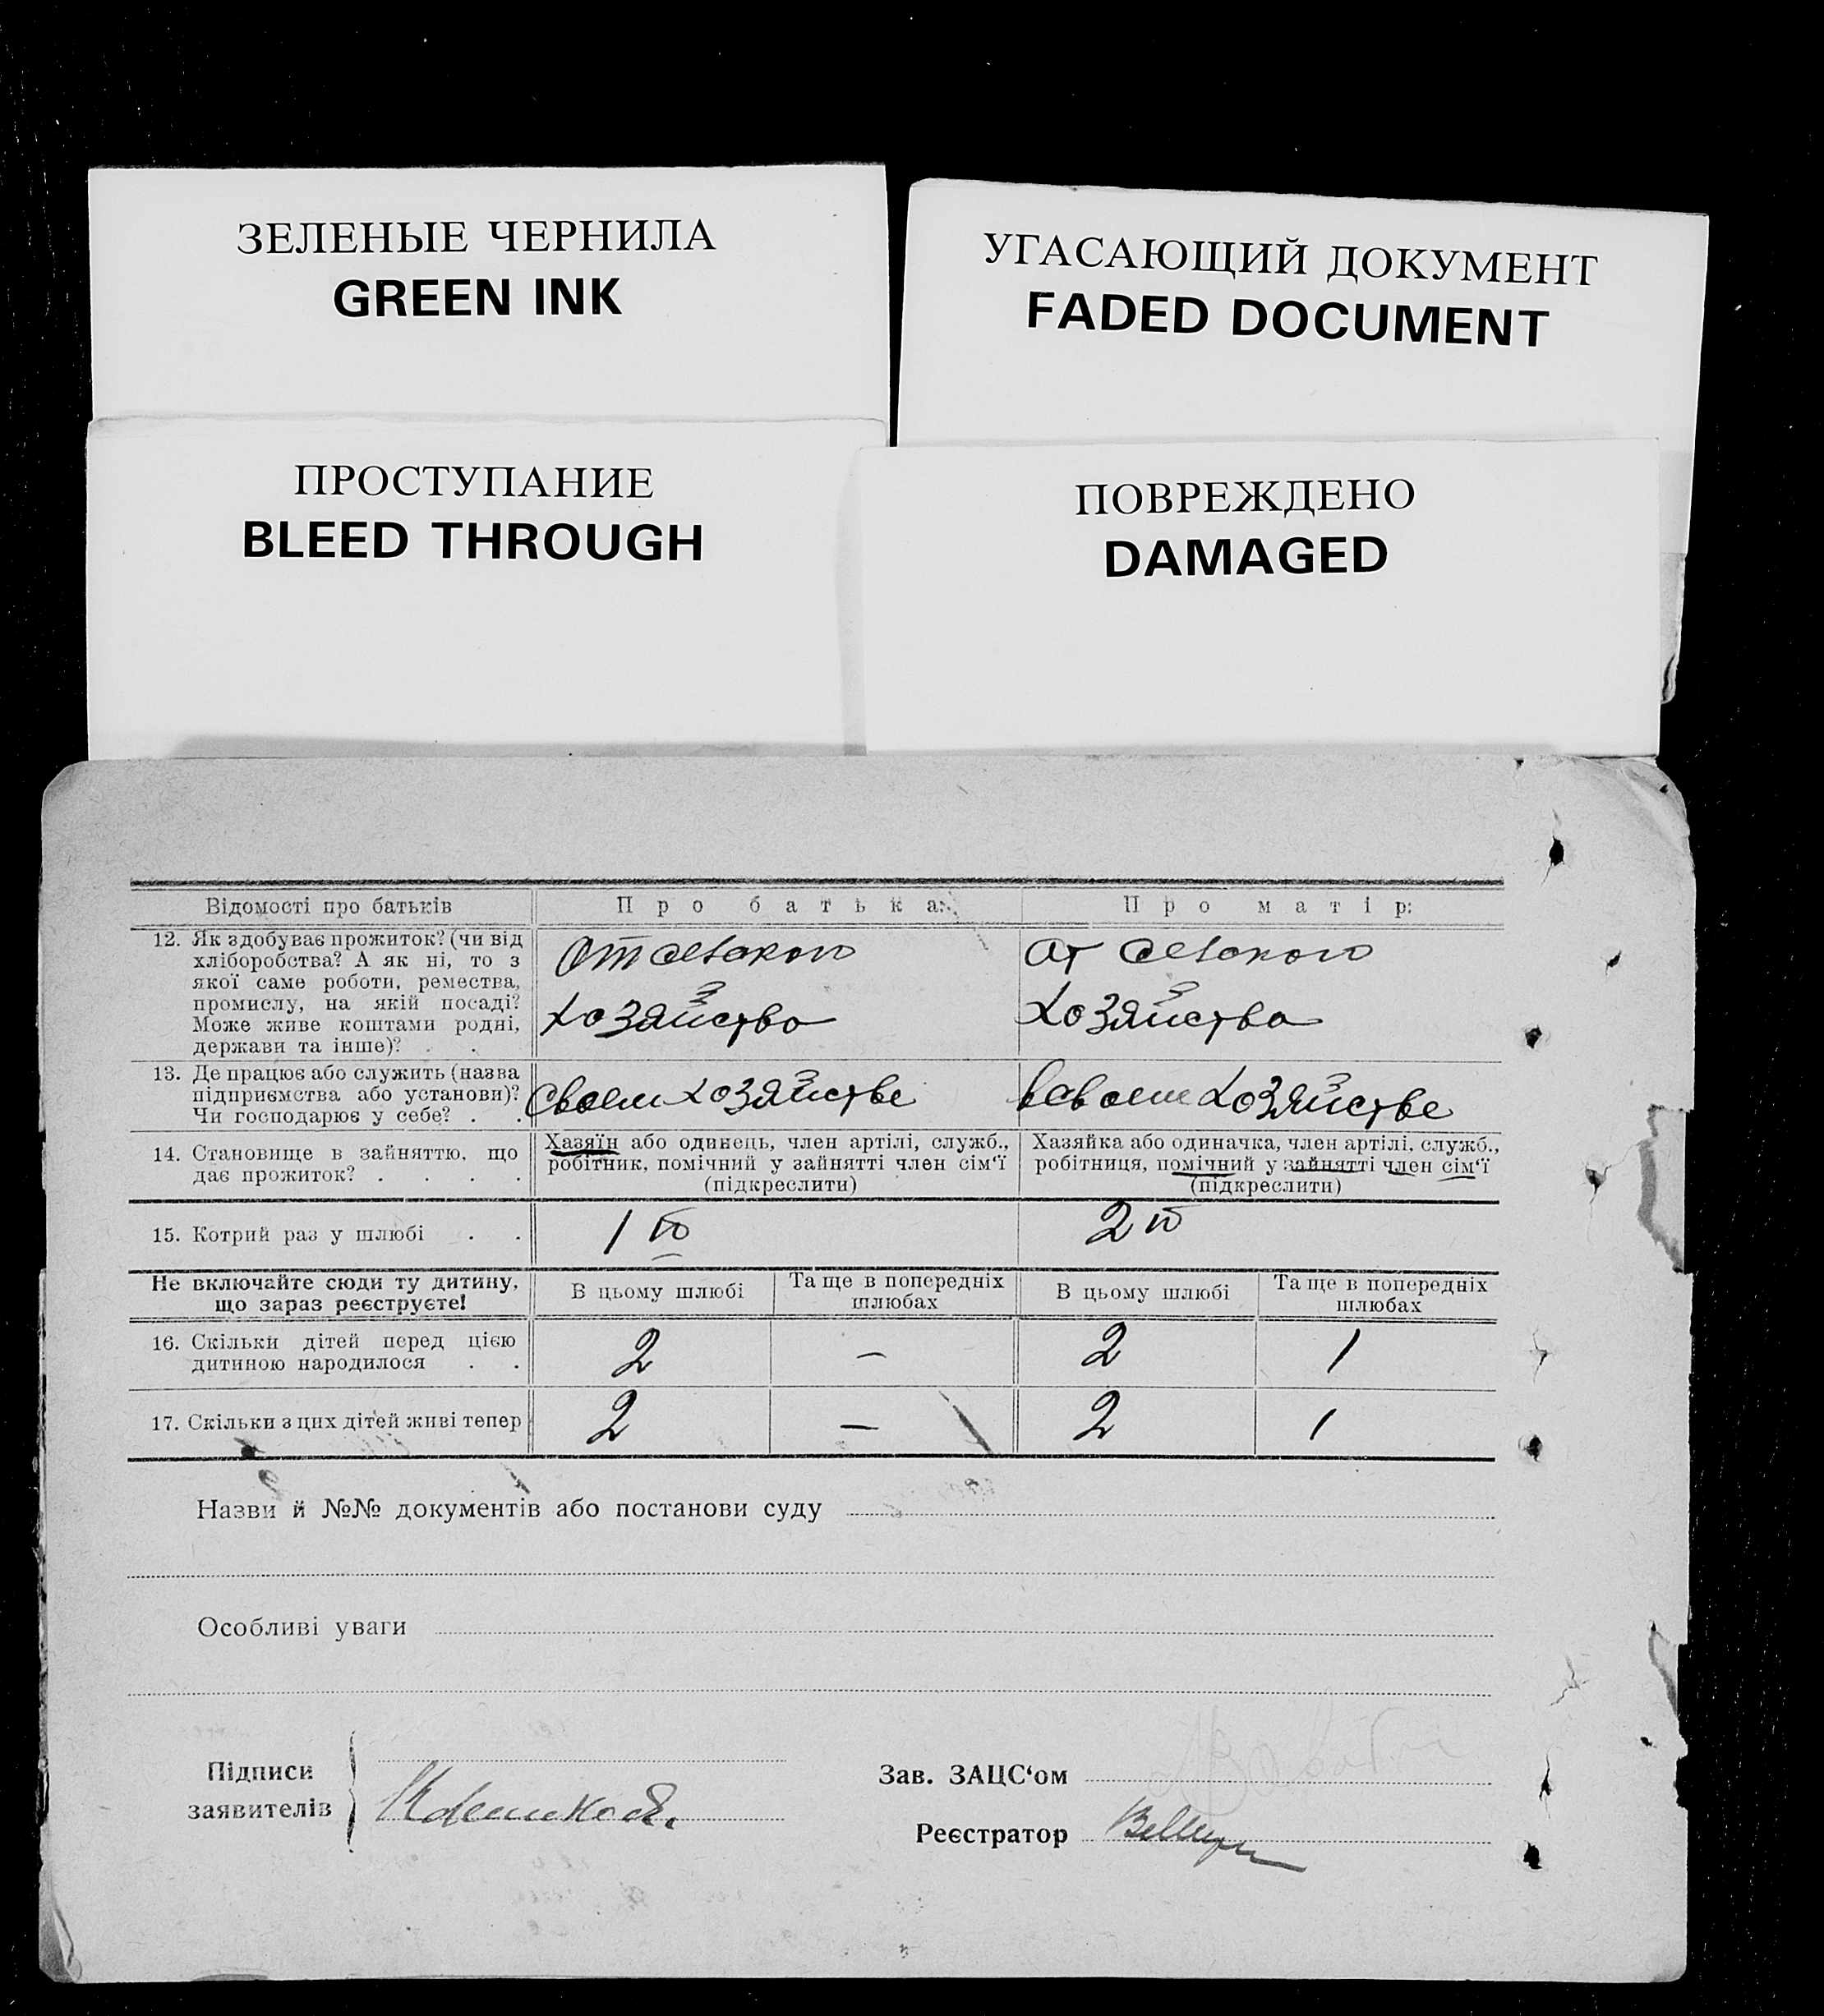 ЗЕЛЕНЫЕ ЧЕРНИЛА
GREEN INK
УГАСАЮЩИЙ ДОКУМЕНТ
FADED DOCUMENT
ПРОСТУПАНИЕ
BLEED THROUGH
ПОВРЕЖДЕНО
DAMAGED
Відомості про батьків
Про батька:
Про матір:
12. Як здобуває прожиток? (чи від
хліборобства? А як ні, то з
якої саме роботи, ремества,
промислу, на якій посаді?
Може живе коштами родні,
держави та інше)? . .
От сельского
хозяйства
От сельского
хозяйства
13. Де працює або служить (назва
підприємства або установи)?
Чи господарює у себе? . .
Своем хозяйстве
в своем хозяйстве
14. Становище в зайняттю, що
дає прожиток? . . . .
Хазяїн або одинець, член артілі, служб.,
робітник, помічний у зайнятті член сім'ї
(підкреслити)
Хазяйка або одиначка, член артілі, служб.,
робітниця, помічний у зайнятті член сім'ї
(підкреслити)
15. Котрий раз у шлюбі . .
1й
2й
Не включайте сюди ту дитину,
що зараз реєструєте!
В цьому шлюбі
Та ще в попередніх
шлюбах
В цьому шлюбі
Та ще в попередніх
шлюбах
16. Скільки дітей перед цією
дитиною народилося . .
2
—
2
1
17. Скільки з цих дітей живі тепер
2
—
2
1
Назви й №№ документів або постанови суду
Особливі уваги
Підписи
заявителів
Зав. ЗАЦС'ом
Реєстратор